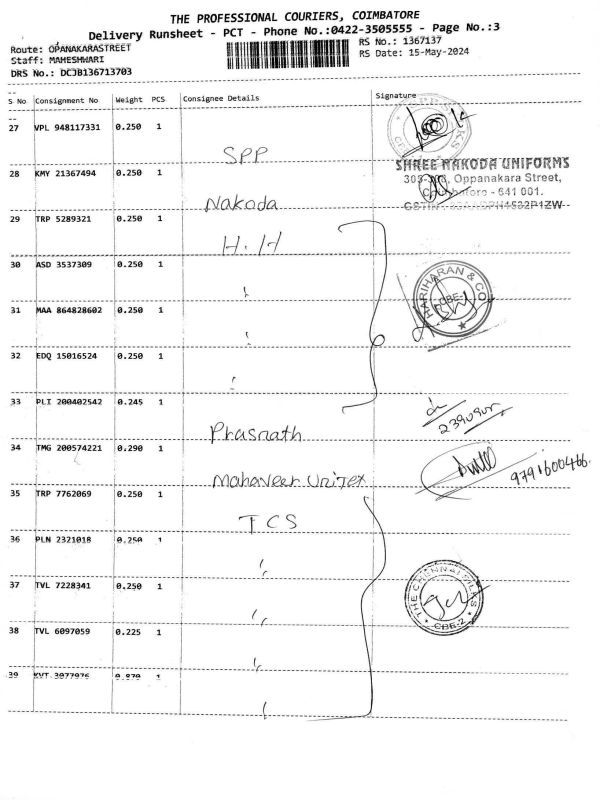 THE PROFESSIONAL COURIERS, COIMBATORE
Delivery Runsheet - PCT - Phone No.:0422-3505555 - Page No.:3
Route: OPANAKARASTREET
RS No.: 1367137
Staff: MAHESHWARI
RS Date: 15-May-2024
DRS No.: DCJB136713703
S No Consignment No Weight PCS Consignee Details Signature
27 VPL 948117331 0.250 1
SPP
SHREE NAKODA UNIFORMS
28 KMY 21367494 0.250 1
Oppanakara Street,
Nakoda
- 641 001.
29 TRP 5289321 0.250 1
H.H
30 ASD 3537309 0.250 1
HARIHARAN & CO
CBE-1
31 MAA 864828602 0.250 1
32 EDQ 15016524 0.250 1
33 PLI 200402542 0.245 1
Prasnath
34 TMG 200574221 0.290 1
9791600466.
Mahaveer Unitex
35 TRP 7762069 0.250 1
TCS
36 PLN 2321018 0.250 1
37 TVL 7228341 0.250 1
THE CHENNAI SILKS
CBE-2
38 TVL 6097059 0.225 1
39 KVT 3077976 0.870 1